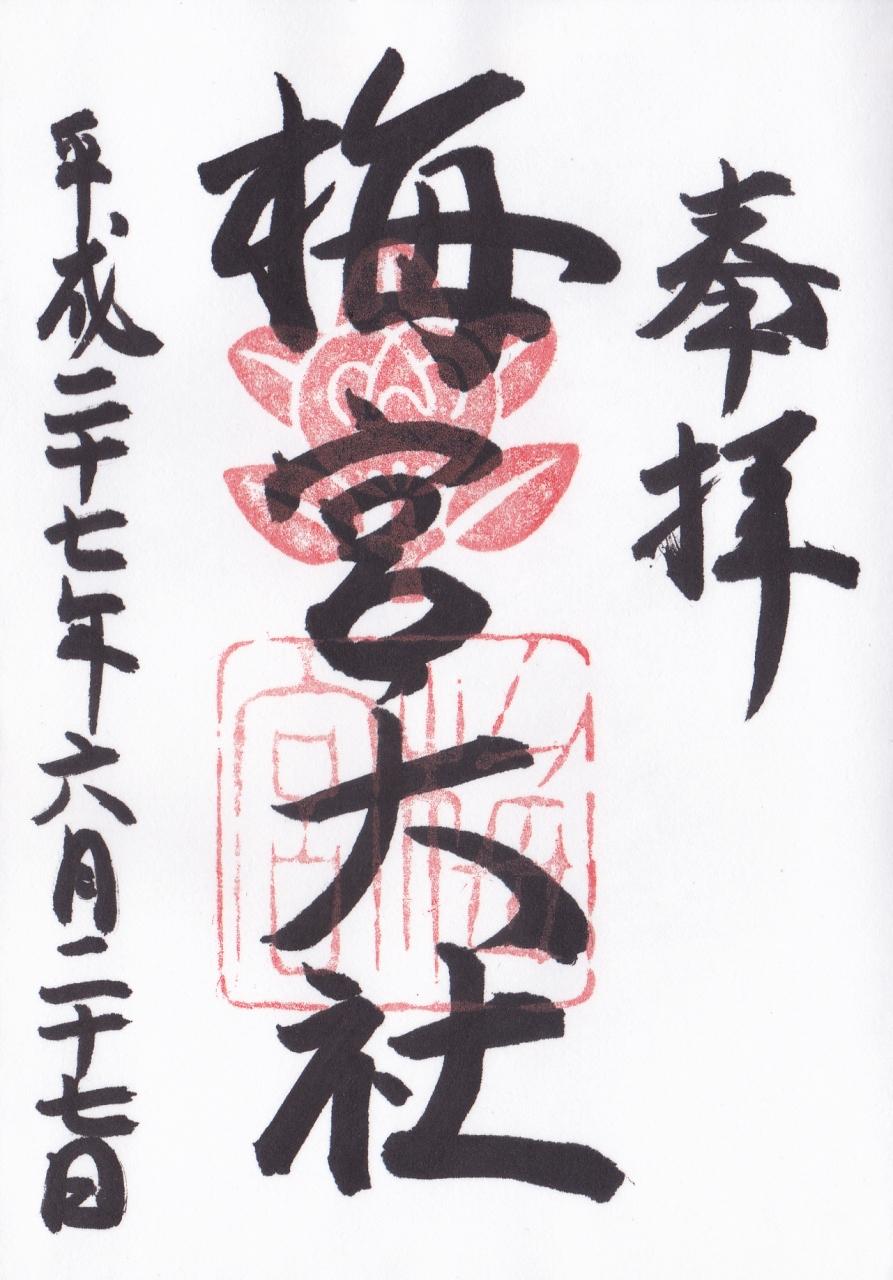 奉拝
梅宮大社
平成二十七年六月二十七日